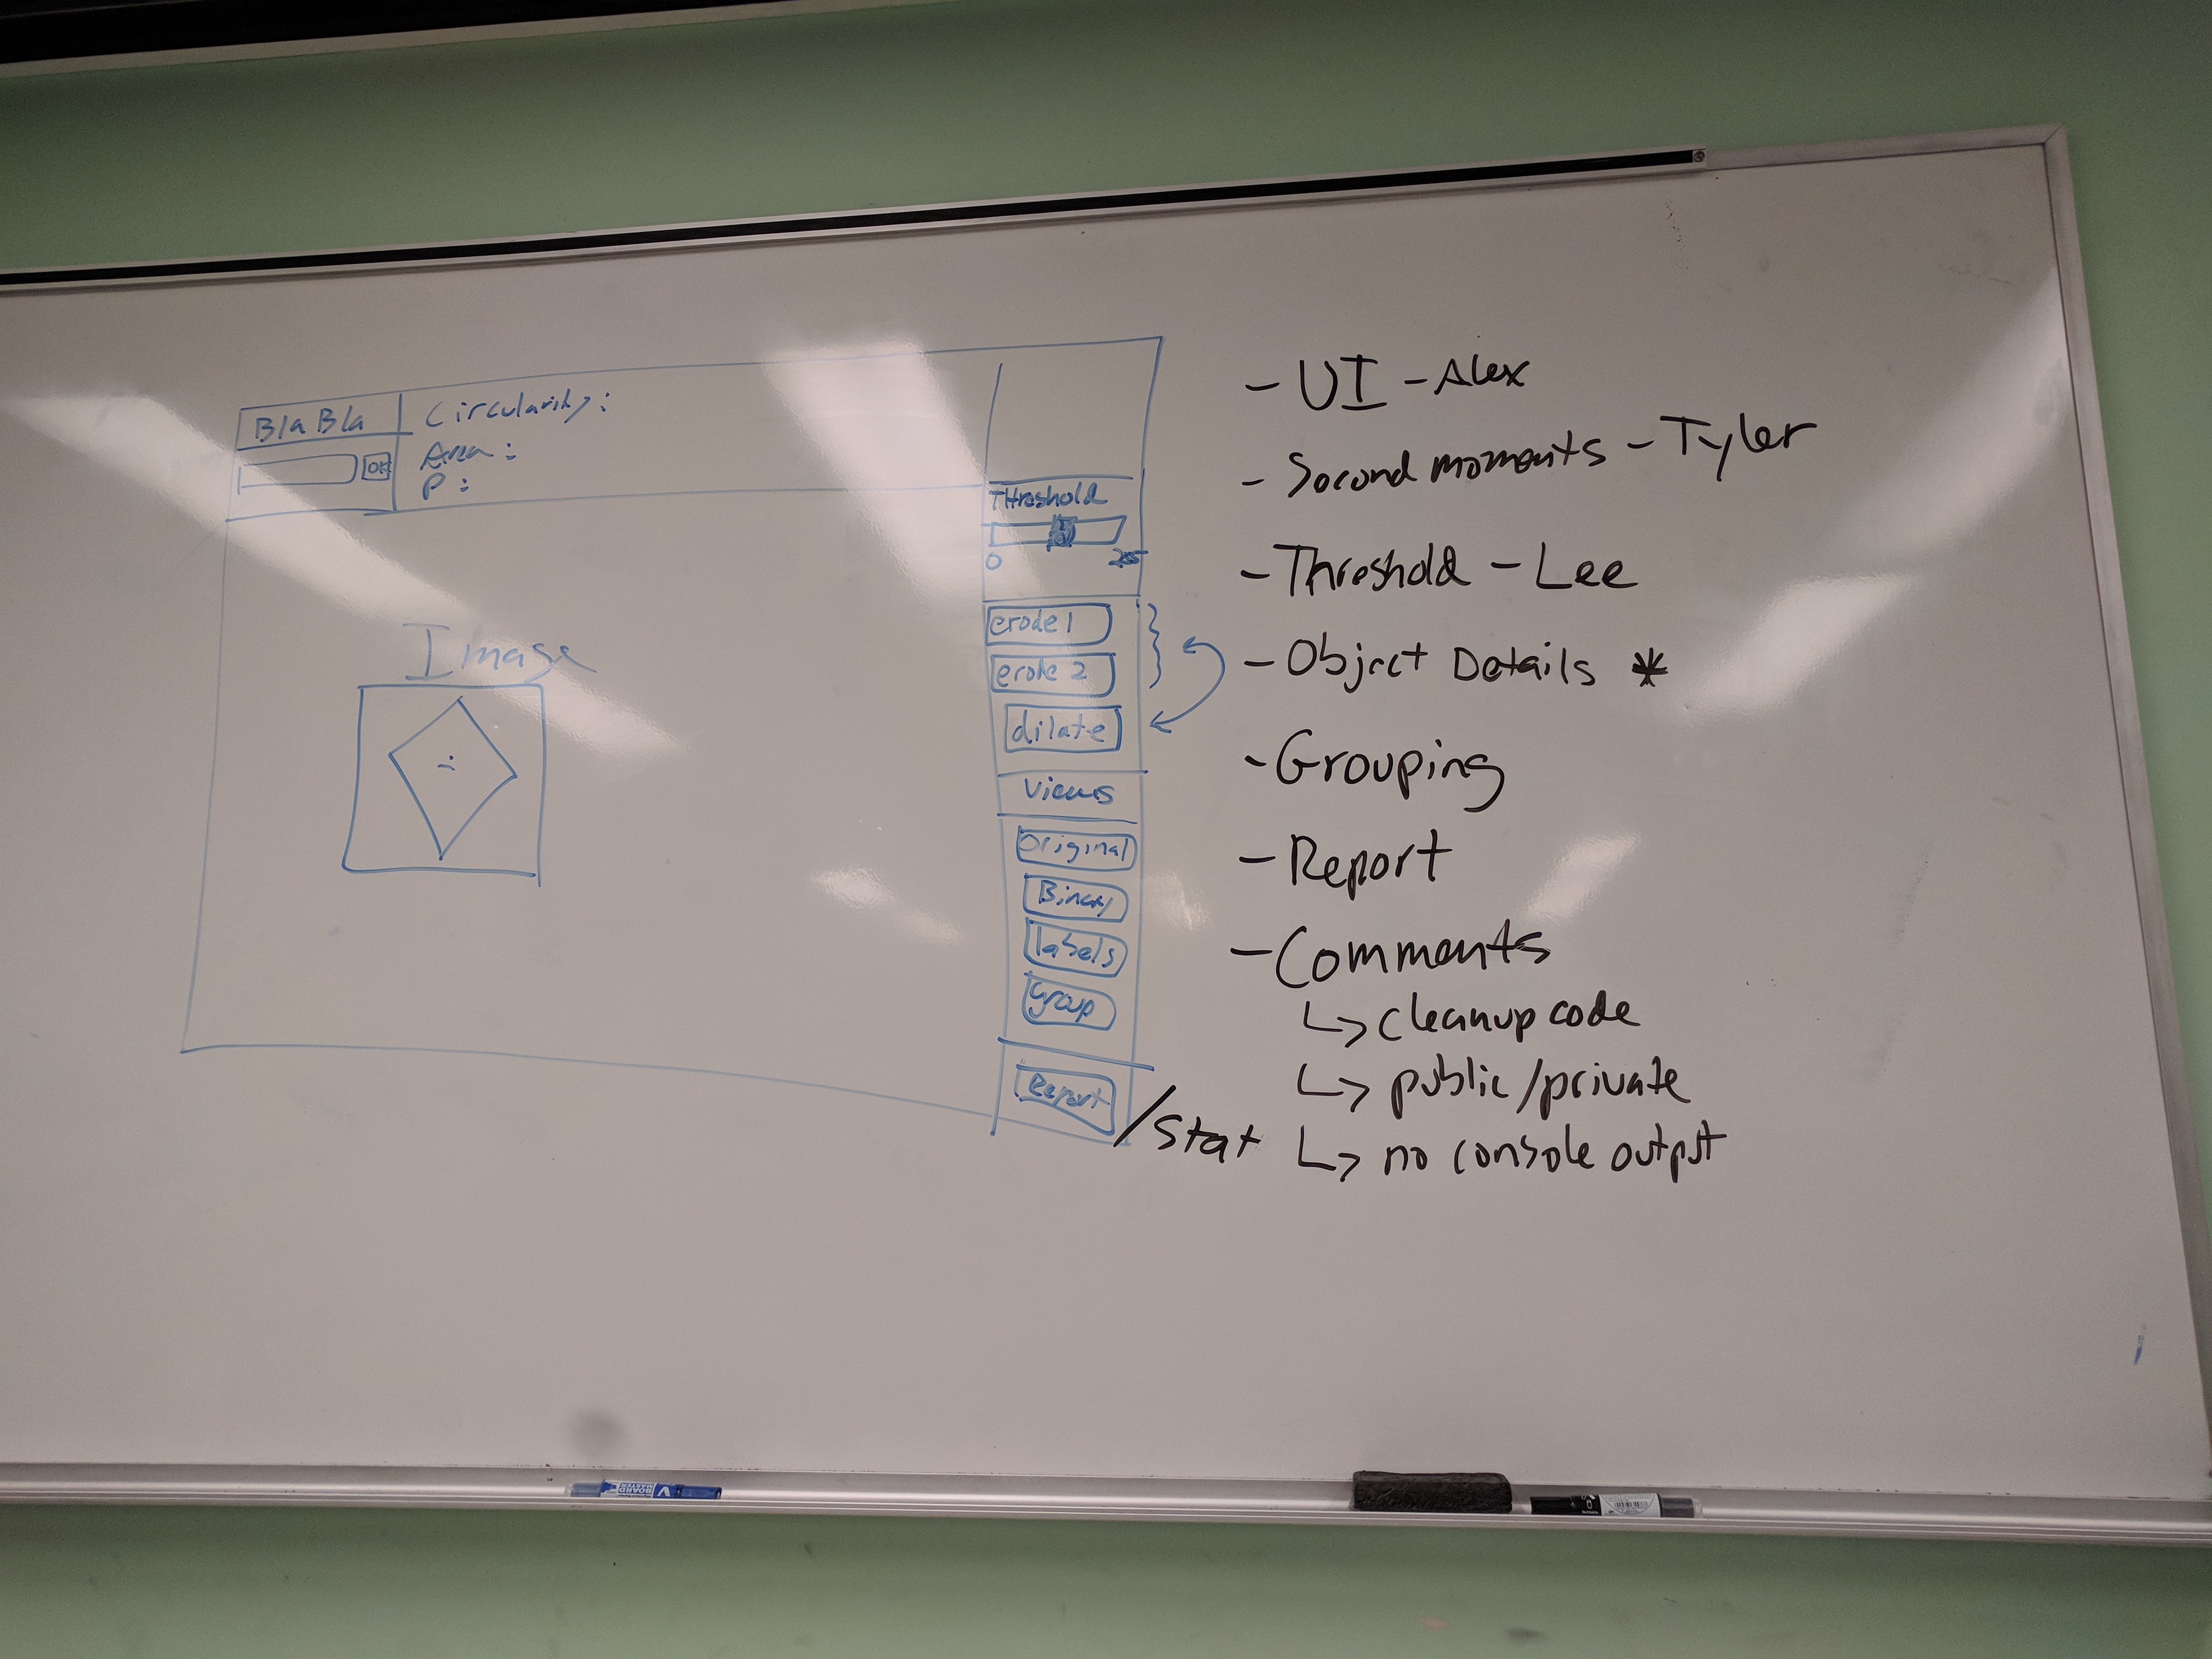 Bla Bla
OK
Circularity:
Area:
P:
Image
Threshold
0 255
erode 1
erode 2
dilate
Views
Original
Binary
labels
group
Report /Stat
- UI - Alex
- Second moments - Tyler
- Threshold - Lee
- Object Details *
- Grouping
- Report
- Comments
↳ cleanup code
↳ public/private
↳ no console output
V BOARD MASTER